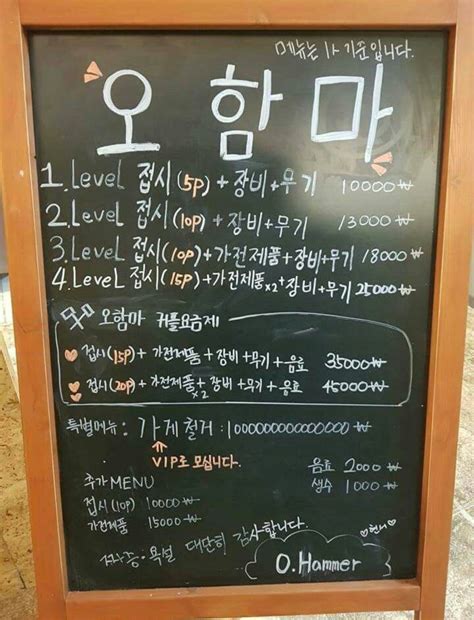 메뉴는 1人 기준입니다.
오함마
1. Level 접시(5P) + 장비+무기 10000₩
2. Level 접시(10P) + 장비+무기 13000₩
3. Level 접시(10P)+가전제품+장비+무기 18000₩
4. Level 접시(15P)+가전제품×2+장비+무기 25000₩
오함마 커플요금제
접시(15P)+ 가전제품 + 장비+무기 + 음료 35000₩
접시(20P)+가전제품×2+ 장비+무기 + 음료 45000₩
특별메뉴 : 가게 철거 :
VIP로 모십니다.
음료 2000₩
생수 1000₩
추가MENU
접시(10P) 10000₩
가전제품 15000₩
욕설 대단히 감사합니다.
O.Hammer